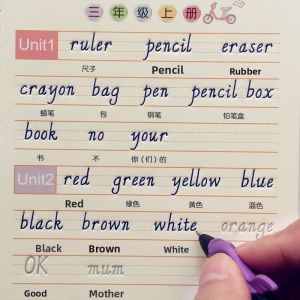 三年级上册
Unit1 ruler pencil eraser
尺子 Pencil Rubber
crayon bag pen pencil box
蜡笔 包 钢笔 铅笔盒
book no your
书 不 你(们)的
Unit2 red green yellow blue
Red 绿色 黄色 蓝色
black brown white orange
Black Brown White
OK mum
Good Mother